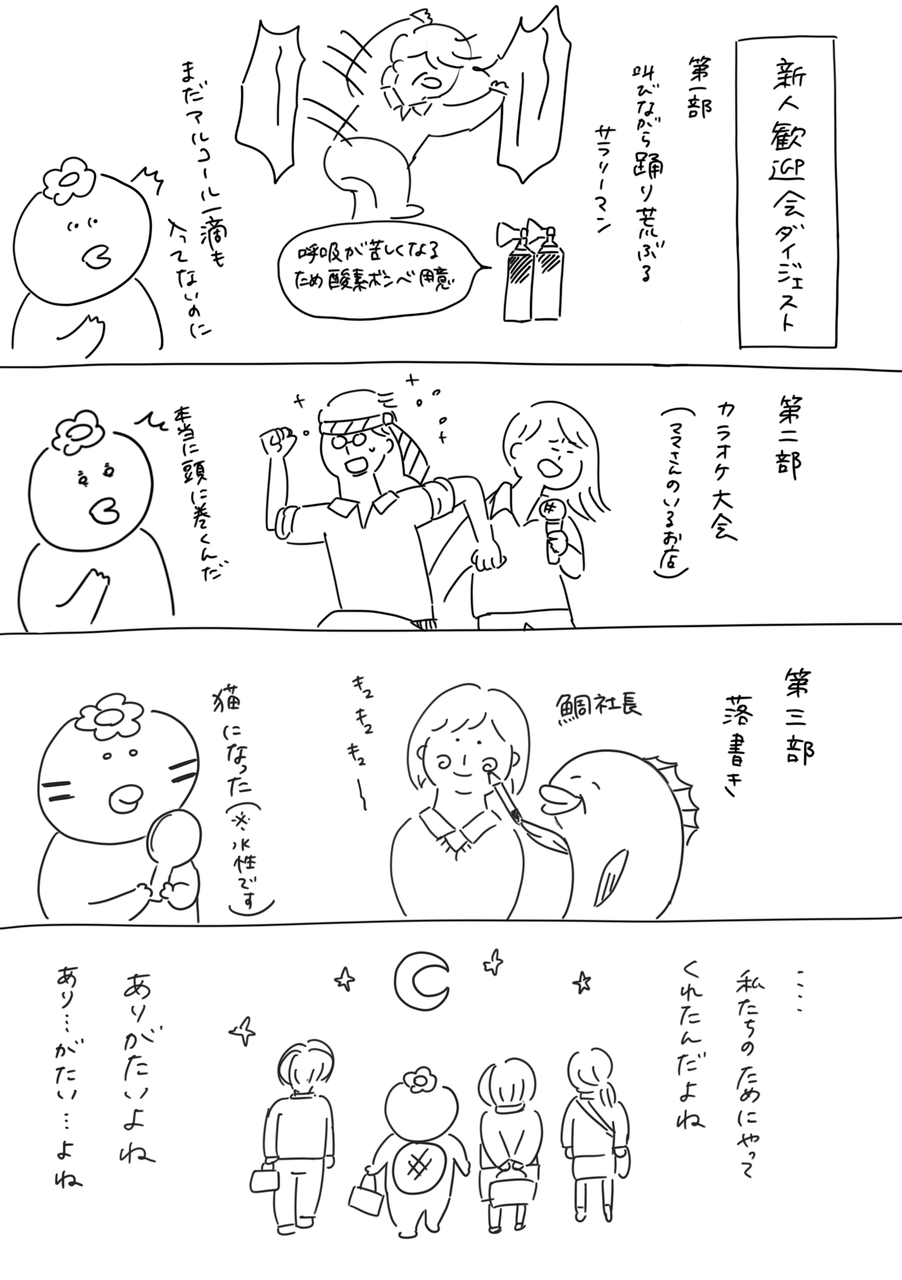 新人歓迎会ダイジェスト
第一部
叫びながら踊り荒ぶる
サラリーマン
呼吸が苦しくなる
ため酸素ボンベ用意
まだアルコール一滴も
入ってないのに
第二部
カラオケ大会
(ママさんのいるお店)
本当に頭に巻くんだ
第三部
落書き
鯛社長
キュキュキュー
猫になった(※水性です)
‥‥
私たちのためにやって
くれたんだよね
ありがたいよね
あり…がたい…よね